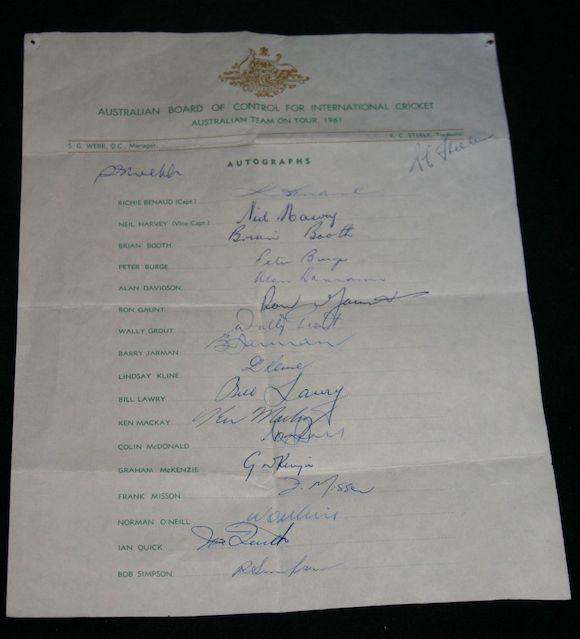 AUSTRALIAN BOARD OF CONTROL FOR INTERNATIONAL CRICKET
AUSTRALIAN TEAM ON TOUR, 1961
S. G. WEBB, Q.C., Manager
R. C. STEELE, Treasurer
AUTOGRAPHS
SGWebb
RC Steele
RICHIE BENAUD (Capt.) R Benaud
NEIL HARVEY (Vice-Capt.) Neil Harvey
BRIAN BOOTH Brian Booth
PETER BURGE Peter Burge
ALAN DAVIDSON Alan Davidson
RON GAUNT Ron Gaunt
WALLY GROUT Wally Grout
BARRY JARMAN B Jarman
LINDSAY KLINE L Kline
BILL LAWRY Bill Lawry
KEN MACKAY Ken Mackay
COLIN McDONALD
GRAHAM McKENZIE G McKenzie
FRANK MISSON F. Misson
NORMAN O'NEILL
IAN QUICK Ian Quick
BOB SIMPSON R Simpson